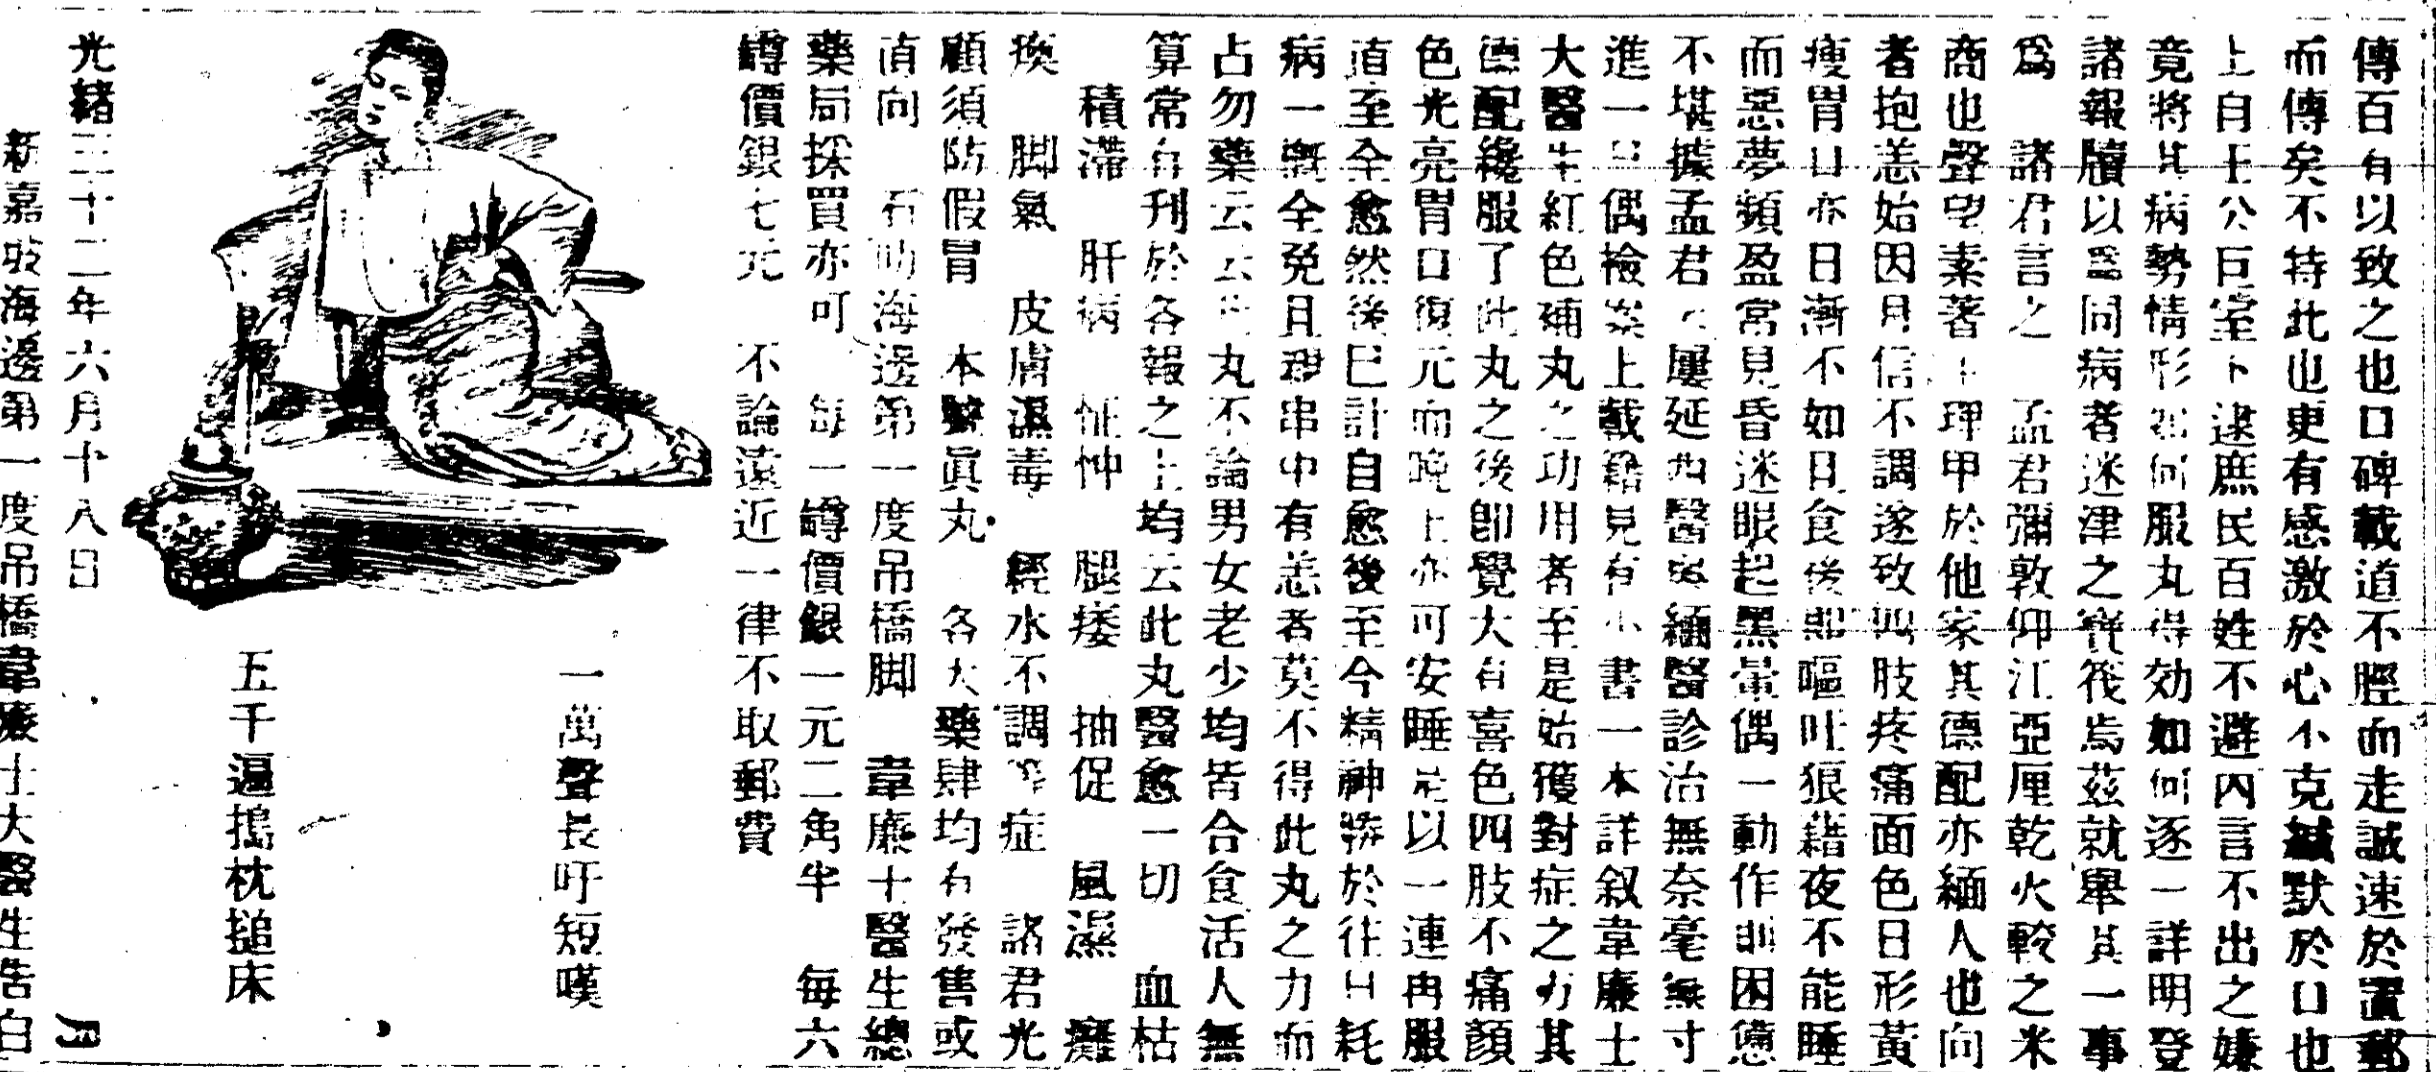 傳百有以致之也口碑載道不脛而走誠速於置郵
而傳矣不特此也更有感激於心不克緘默於口也
上自王公巨室下逮庶民百姓不避內言不出之嫌
竟將其病勢情形如何服丸得効如何逐一詳明登
諸報牘以為同病者迷津之寶筏焉茲就舉其一事
爲 諸君言之 孟君彌敦仰江亞厘乾火較之米
商也聲望素著 珅甲於他家其德配亦緬人也向
者抱恙始因月信不調遂致四肢疼痛面色日形黃
瘦胃口亦日漸不如日食後即嘔吐狼藉夜不能睡
而惡夢頻盈常見昏迷眼起黑暈偶一動作即困憊
不堪據孟君云屢延西醫與緬醫診治無奈毫無寸
進一旦偶檢案上載籍見有小書一本詳叙韋廉士
大醫生紅色補丸之功用者至是始獲對症之方其
德配纔服了此丸之後卽覺大有喜色四肢不痛顏
色光亮胃口復元而晚上亦可安睡是以一連再服
直至全愈然後已計自愈後至今精神勝於往日耗
病一概全免且親串中有恙者莫不得此丸之力而
占勿藥云云此丸不論男女老少均皆合食活人無
算常有刊於各報之上均云此丸醫愈一切 血枯
積滯 肝病 怔忡 腿痿 抽促 風濕 癱
瘓 脚氣 皮膚濕毒 經水不調等症 諸君光
顧須防假冒 本醫眞丸 各大藥肆均有發售或
直向 石叻海邊第一度吊橋脚 韋廉士醫生總
藥局採買亦可 每一罇價銀一元二角半 每六
罇價銀七元 不論遠近一律不取郵費
一萬聲長吁短嘆
五千遍搗枕搥床
光緖三十二年六月十八日
新嘉坡海邊第一度吊橋韋廉士大醫生告白